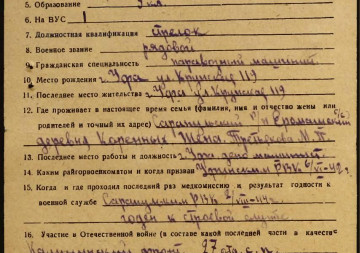 5. Образование 3 кл.
6. На ВУС 1
7. Должностная квалификация стрелок
8. Военное звание рядовой
9. Гражданская специальность паровозный машинист
10. Место рождения г. Уфа ул Крупской 119
11. Последнее место жительства г. Уфа ул Крупской 119
12. Где проживает в настоящее время семья (фамилия, имя и отчество жены или
родителей и точный их адрес) Сарапульский р/н с/с
деревня жена М. П.
13. Последнее место работы и должность г. Уфа депо машинист
14. Каким райгорвоенкоматом и когда призван РВК
15. Когда и где проходил последний раз медкомиссию и результат годности к
военной службе Сарапульским РВК VIII-44г.
годен к строевой службе
16. Участие в Отечественной войне (в составе какой последней части и в качестве
фронт 27 с. п.